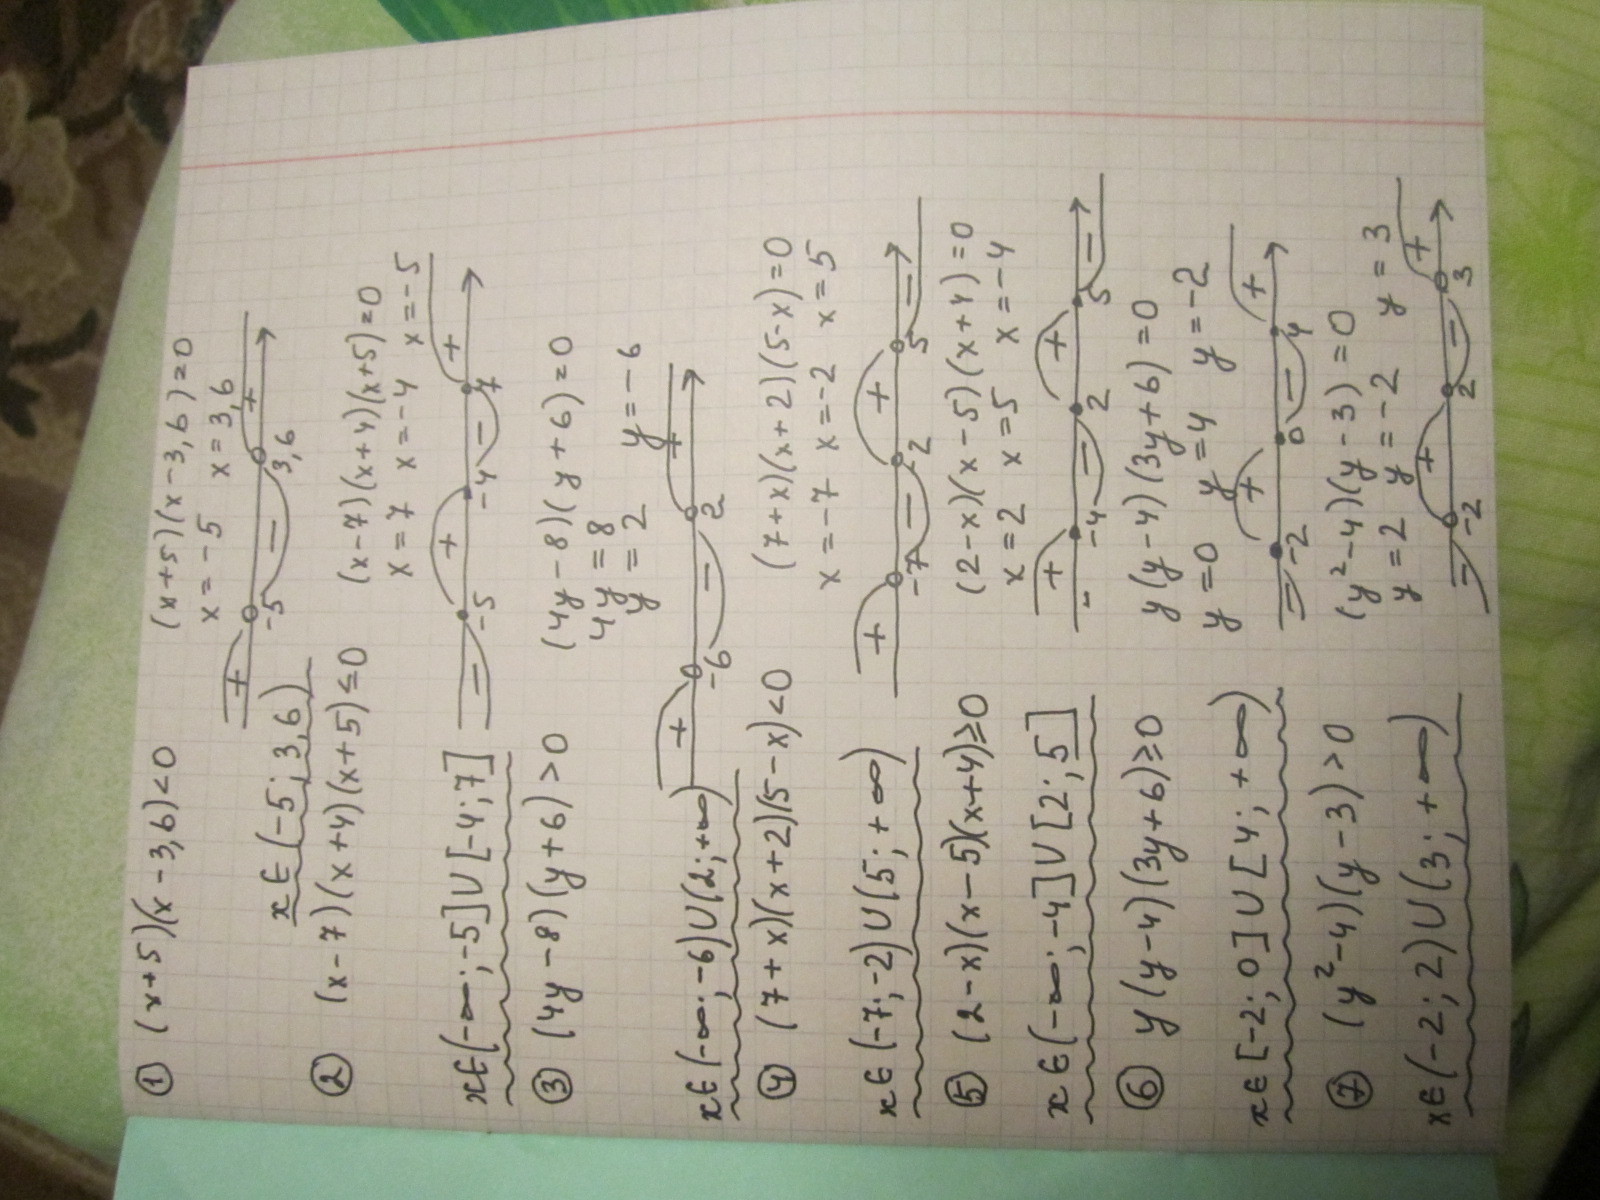 ① (x+5)(x-3,6)<0 (x+5)(x-3,6)=0
x=-5 x=3,6
+ - +
-5 3,6
x∈(-5; 3,6)
② (x-7)(x+4)(x+5)≤0 (x-7)(x+4)(x+5)=0
x=7 x=-4 x=-5
- + - +
-5 -4 7
x∈(-∞;-5]U[-4;7]
③ (4y-8)(y+6)>0 (4y-8)(y+6)=0
4y=8 y=-6
y=2
+ - +
-6 2
x∈(-∞;-6)U(2;+∞)
④ (7+x)(x+2)(5-x)<0 (7+x)(x+2)(5-x)=0
x=-7 x=-2 x=5
+ - + -
-7 -2 5
x∈(-7;-2)U(5;+∞)
⑤ (2-x)(x-5)(x+4)≥0 (2-x)(x-5)(x+4)=0
x=2 x=5 x=-4
+ - + -
-4 2 5
x∈(-∞;-4]U[2;5]
⑥ y(y-4)(3y+6)≥0 y(y-4)(3y+6)=0
y=0 y=4 y=-2
- + - +
-2 0 4
x∈[-2;0]U[4;+∞)
⑦ (y²-4)(y-3)>0 (y²-4)(y-3)=0
y=2 y=-2 y=3
- + - +
-2 2 3
x∈(-2;2)U(3;+∞)